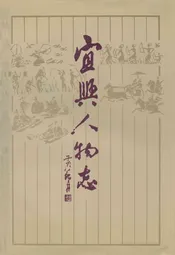 宜興人物志